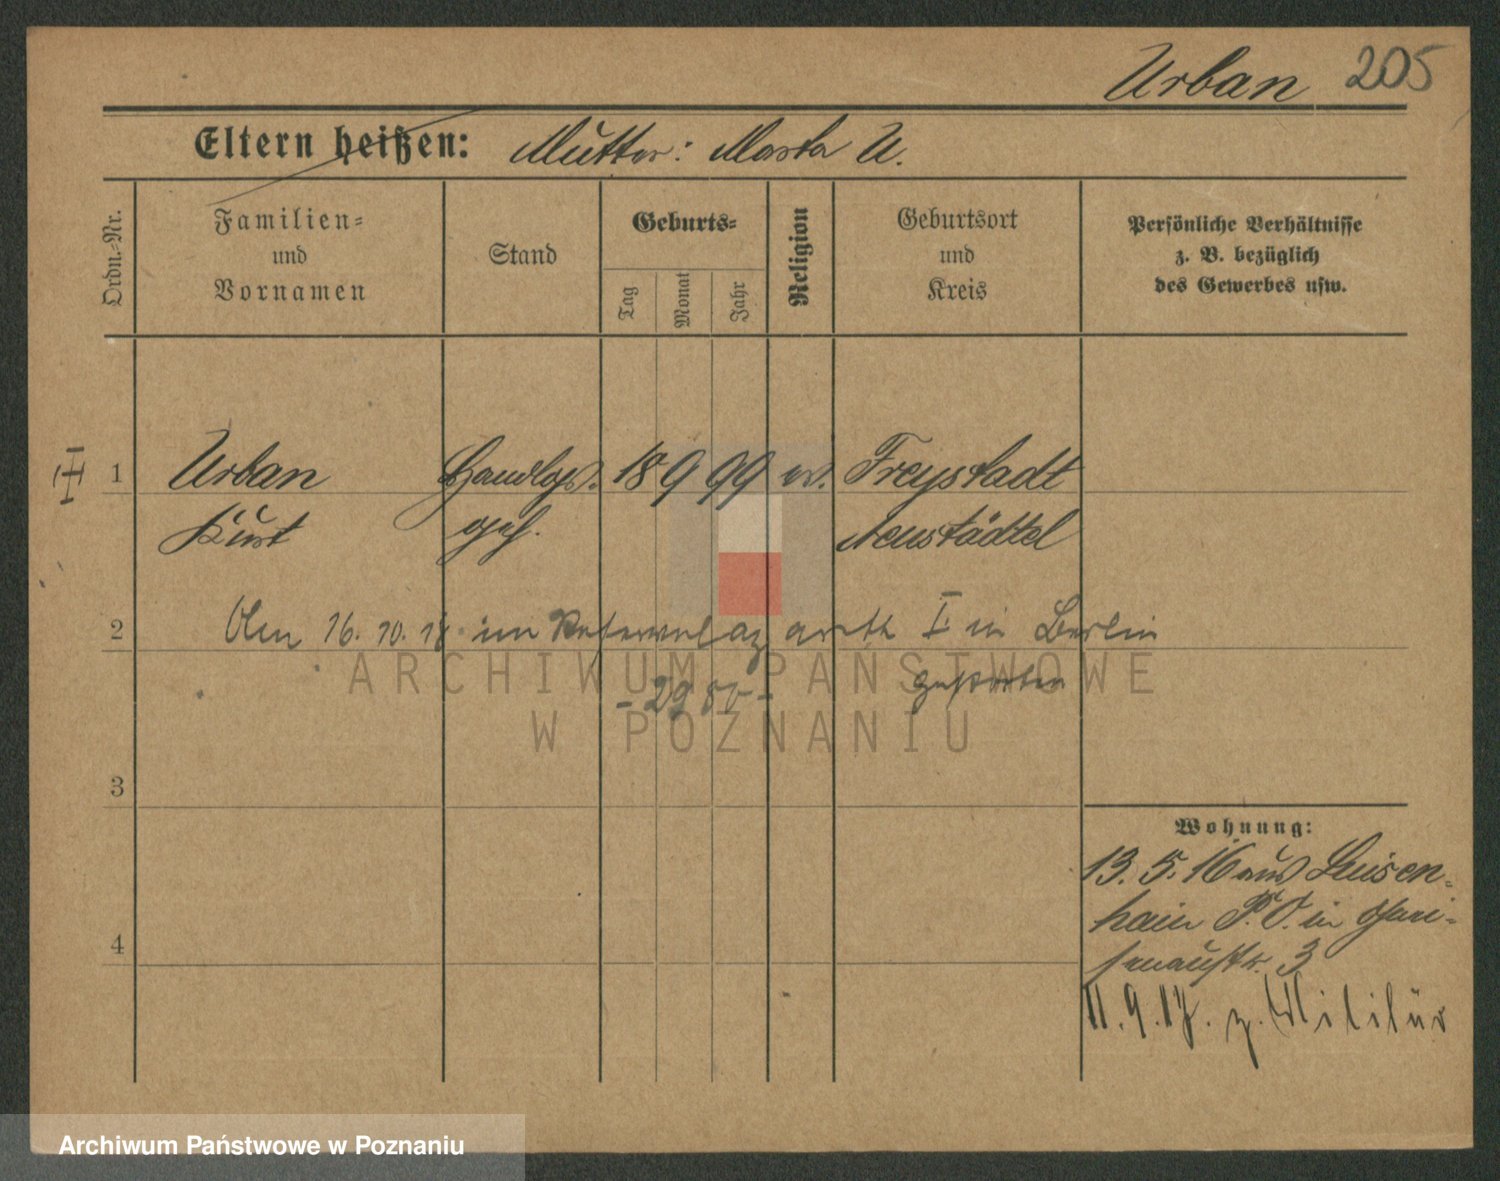 Urban 205
Eltern heißen: Mutter: Marta U.
Ordn.-Nr.
Familien-
und
Vornamen
Stand
Geburts-
Tag
Monat
Jahr
Religion
Geburtsort
und
Kreis
Persönliche Verhältnisse
z. B. bezüglich
des Gewerbes usw.
1 Urban Handlgs. 18 9 99 ev. Freystadt
Kurt geh. Neustädtel
2 Am 16. 10. 18. im Reservelazarett I in Berlin
gestorben
ARCHIWUM PAŃSTWOWE
W POZNANIU
3
Wohnung:
13. 5. 16 aus Luisen-
hain P. O. in
str. 3
4
11. 9. 17. z. Militär
Archiwum Państwowe w Poznaniu